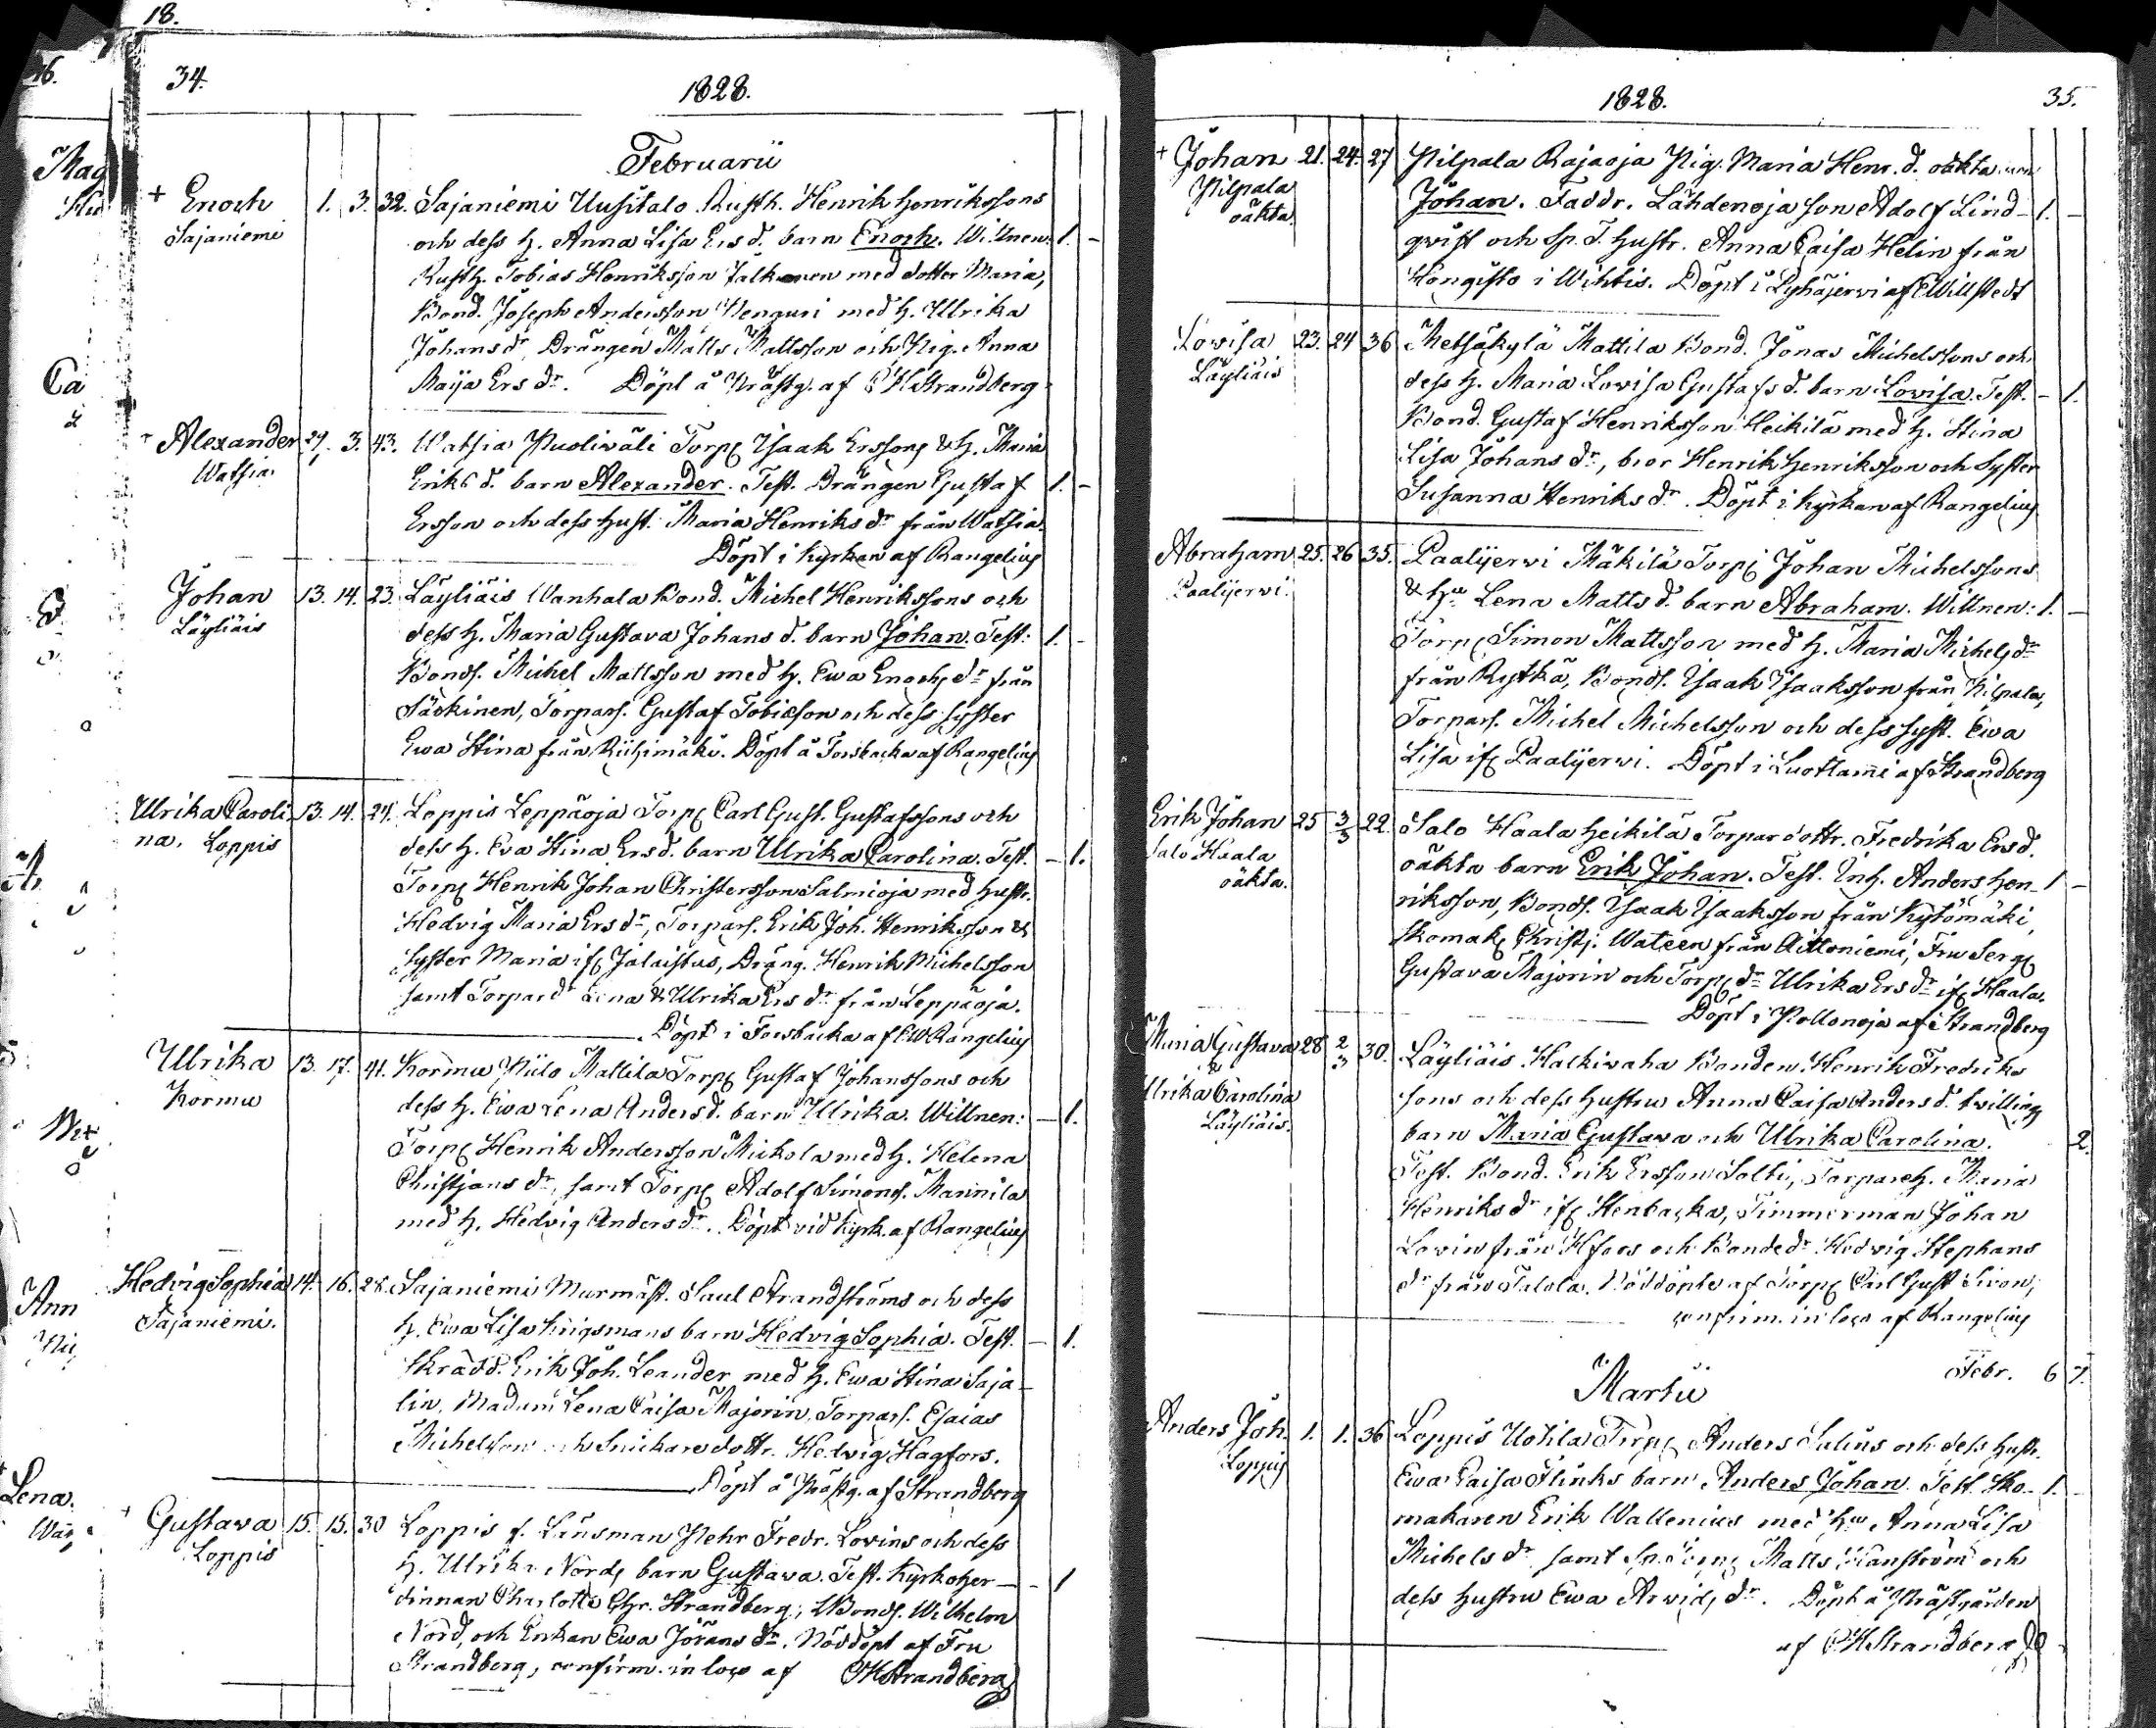 18.
34.
1828.
Februarii
+ Enoch 1. 3. 32. Sajaniemi Uusitalo Rusth. Henrik Henrikssons
Sajaniemi och dess h. Anna Lisa Ers d. barn Enoch. Wittnen: 1. -
Rusth. Tobias Henriksson Jalkanen med dotter Maria,
Bond. Joseph Andersson Wenguri med h. Ulrika
Johans dr, Drängen Matts Mattsson och Pig. Anna
Maija Ers dr. Döpt å Prästg. af CHStrandberg
Alexander 29/1 3. 43. Watsia Puoliwäli Torp. Isaak Erssons & h. Maria
Watsia Eriks d. barn Alexander. Test. Drängen Gustaf 1. -
Ersson och dess hust. Maria Henriks dr från Watsia.
Döpt i Kyrkan af Rangelius
Johan 13. 14. 23. Läyliäis Wanhala Bond. Michel Henrikssons och
Läyliäis dess h. Maria Gustava Johans d. barn Johan. Test: 1. -
Bonds. Michel Mattsson med h. Ewa Enochs dr från
Säskinen, Torpars. Gustaf Tobiasson och dess syster
Ewa Stina från Riihimäki. Döpt å Forsbacka af Rangelius
Ulrika Caroli- 13. 14. 24. Loppis Leppäoja Torp. Carl Gust. Gustafssons och
na. Loppis dess h. Eva Stina Ers d. barn Ulrika Carolina. Test. - 1.
Torp. Henrik Johan Christersson Salmioja med hustr.
Hedvig Maria Ers dr, Torpars. Erik Joh. Henriksson &
syster Maria ifr. Jalaistus, Dräng. Henrik Michelsson
samt Torpare dr Lena & Ulrika Ers dr från Leppäoja.
Döpt i Forsbacka af EWRangelius
Ulrika 13. 17. 41. Kormu Piilo Mattila Torp. Gustaf Johanssons och
Kormu dess h. Ewa Lena Anders d. barn Ulrika. Wittnen: - 1.
Torp. Henrik Andersson Mickola med h. Helena
Christjans dr, samt Torp. Adolf Simons. Mannila
med h. Hedvig Anders dr. Döpt vid Kyrk. af Rangelius
Hedvig Sophia 14. 16. 28. Sajaniemi Murmäst. Saul Strandströms och dess
Sajaniemi. h. Ewa Lisa Krigsmans barn Hedvig Sophia. Test. - 1.
Skrädd. Erik Joh. Leander med h. Ewa Stina Saja-
lin, Madam Lena Caisa Majorin, Torpars. Esaias
Michelsson och Snickare dottr. Hedvig Hagfors.
Döpt å Prästg. af Strandberg
+ Gustava 15. 15. 30 Loppis f. Länsman Pehr Fredr. Lovins och dess
Loppis h. Ulrika Nords barn Gustava. Test. Kyrkoher- - 1
dinnan Charlotte Chr. Strandberg, Bonds. Wilhelm
Nord, och Enkan Ewa Jörans dr. Nöddöpt af Fru
Strandberg, confirm. in loco af CHStrandberg
1828.
35.
+ Johan 21. 24. 27 Pilpala Rajaoja Pig. Maria Henr. d. oäkta
Pilpala Johan. Faddr. Lähdenoja son Adolf Lind- 1. -
oäkta. qvist och Sp. T. hustr. Anna Caisa Helin från
Hongisto i Wihtis. Döpt i Pyhäjerwi af Willstedt
Lovisa 23. 24 36 Metsäkylä Mattila Bond. Jonas Michelssons och
Läyliäis dess h. Maria Lovisa Gustafs d. barn Lovisa. Test. - 1.
Bond. Gustaf Henriksson Heikilä med h. Stina
Lisa Johans dr, bror Henrik Henriksson och Syster
Susanna Henriks dr. Döpt i Kyrkan af Rangelius
Abraham 25. 26 35. Paalijerwi Mäkilä Torp. Johan Michelssons
Paalijerwi. & hu Lena Matts d. barn Abraham. Wittnen: 1. -
Torp. Simon Mattsson med h. Maria Michels dr
från Rytkä, Bonds. Isaak Isaaksson från Pilpala,
Torpars. Michel Michelsson och dess syst. Ewa
Lisa ifr. Paalijerwi. Döpt i Luottami af Strandberg
Erik Johan 25 3/3 22. Salo Haala Heikilä Torpar dottr. Fredrika Ers d.
Salo Haala oäkta barn Erik Johan. Test. Enh. Anders Hen- 1 -
oäkta. riksson, Bonds. Isaak Isaaksson från Kytömäki,
Skomak. Christj. Wateen från Aittoniemi, Fru Serg.
Gustava Majorin och Torp. dr Ulrika Ers dr ifr. Haala.
Döpt i Pollonoja af Strandberg
Maria Gustava 28 2/3 30. Läyliäis Halkiwaha Bonden Henrik Fredriks
&
Ulrika Carolina sons och dess hustru Anna Caisa Anders d. twilling
Läyliäis. barn Maria Gustava och Ulrika Carolina. 2.
Test. Bond. Erik Ersson Soltti, Torpare h. Maria
Henriks dr ifr. Stenbacka, Timmerman Johan
Lovin från Hfors och Bonde dr Hedvig Stephans
dr från Talola. Nöddöpte af Torp. Carl Gust. Siron,
confirm. in loco af Rangelius
Febr. 6 7.
Martii
Anders Joh. 1. 1. 36 Loppis Uotila Torp. Anders Salins och dess hustr.
Loppis Ewa Caisa Flinks barn Anders Johan. Test. Sko- 1. -
makaren Erik Wallenius med hu Anna Lisa
Michels dr samt Sp. Torp. Matts Granström och
dess hustru Ewa Arvids dr. Döpt å Prästgården
af CHStrandberg